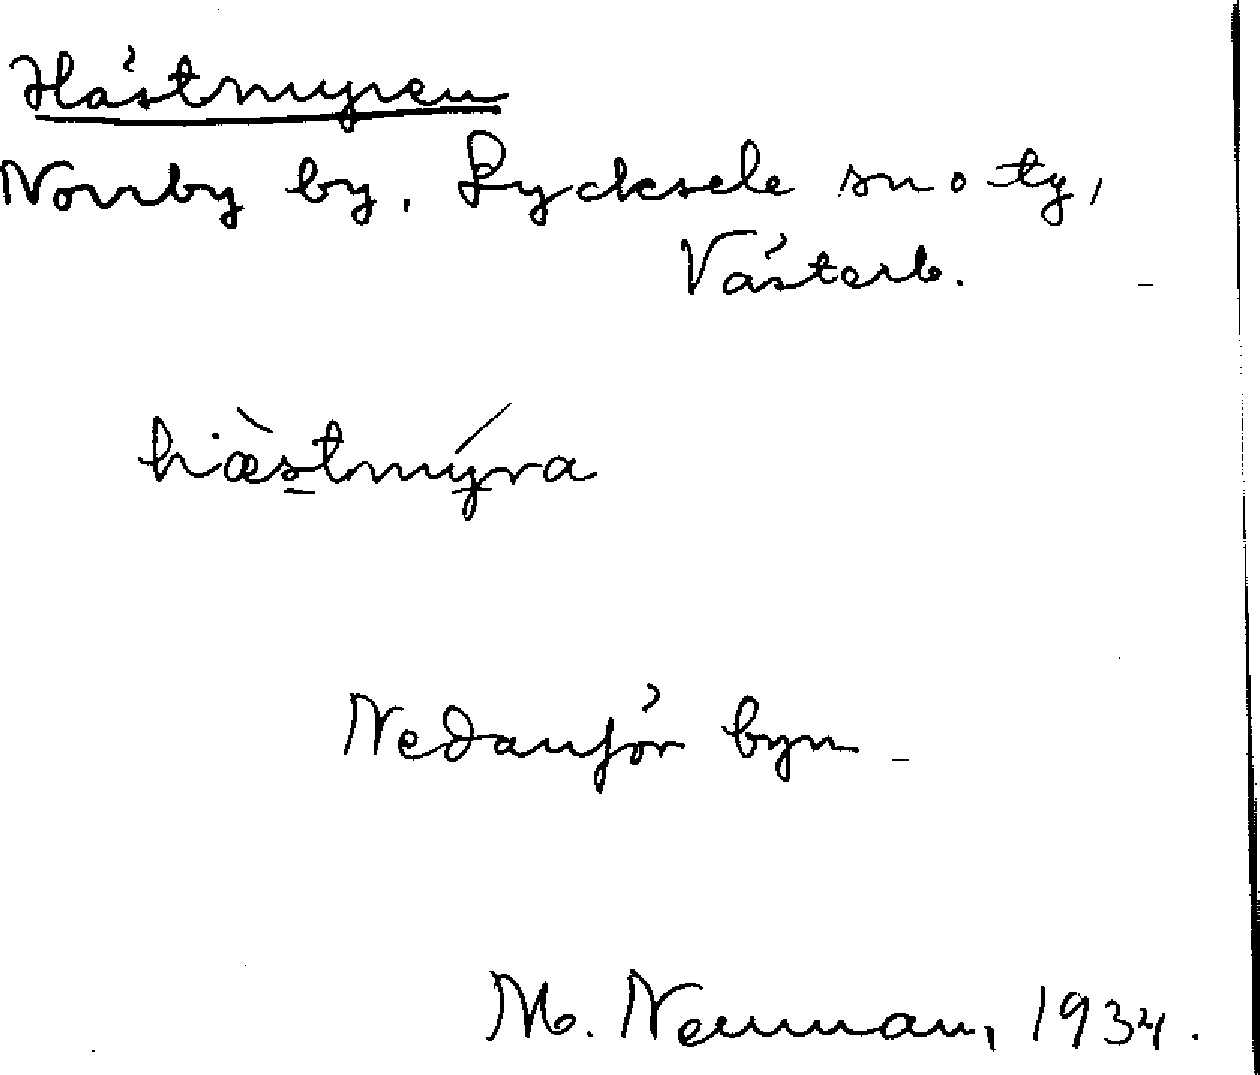 Hästmyren
Norrby by, Lycksele sn o tg,
Västerb.
hi̯æ̀stmýra
Nedanför byn
M. Neuman, 1934.